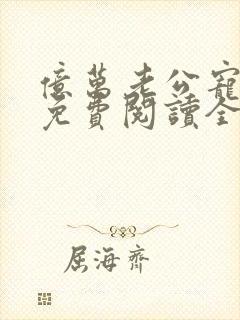 億萬老公寵
免費閱讀全
屈海齊